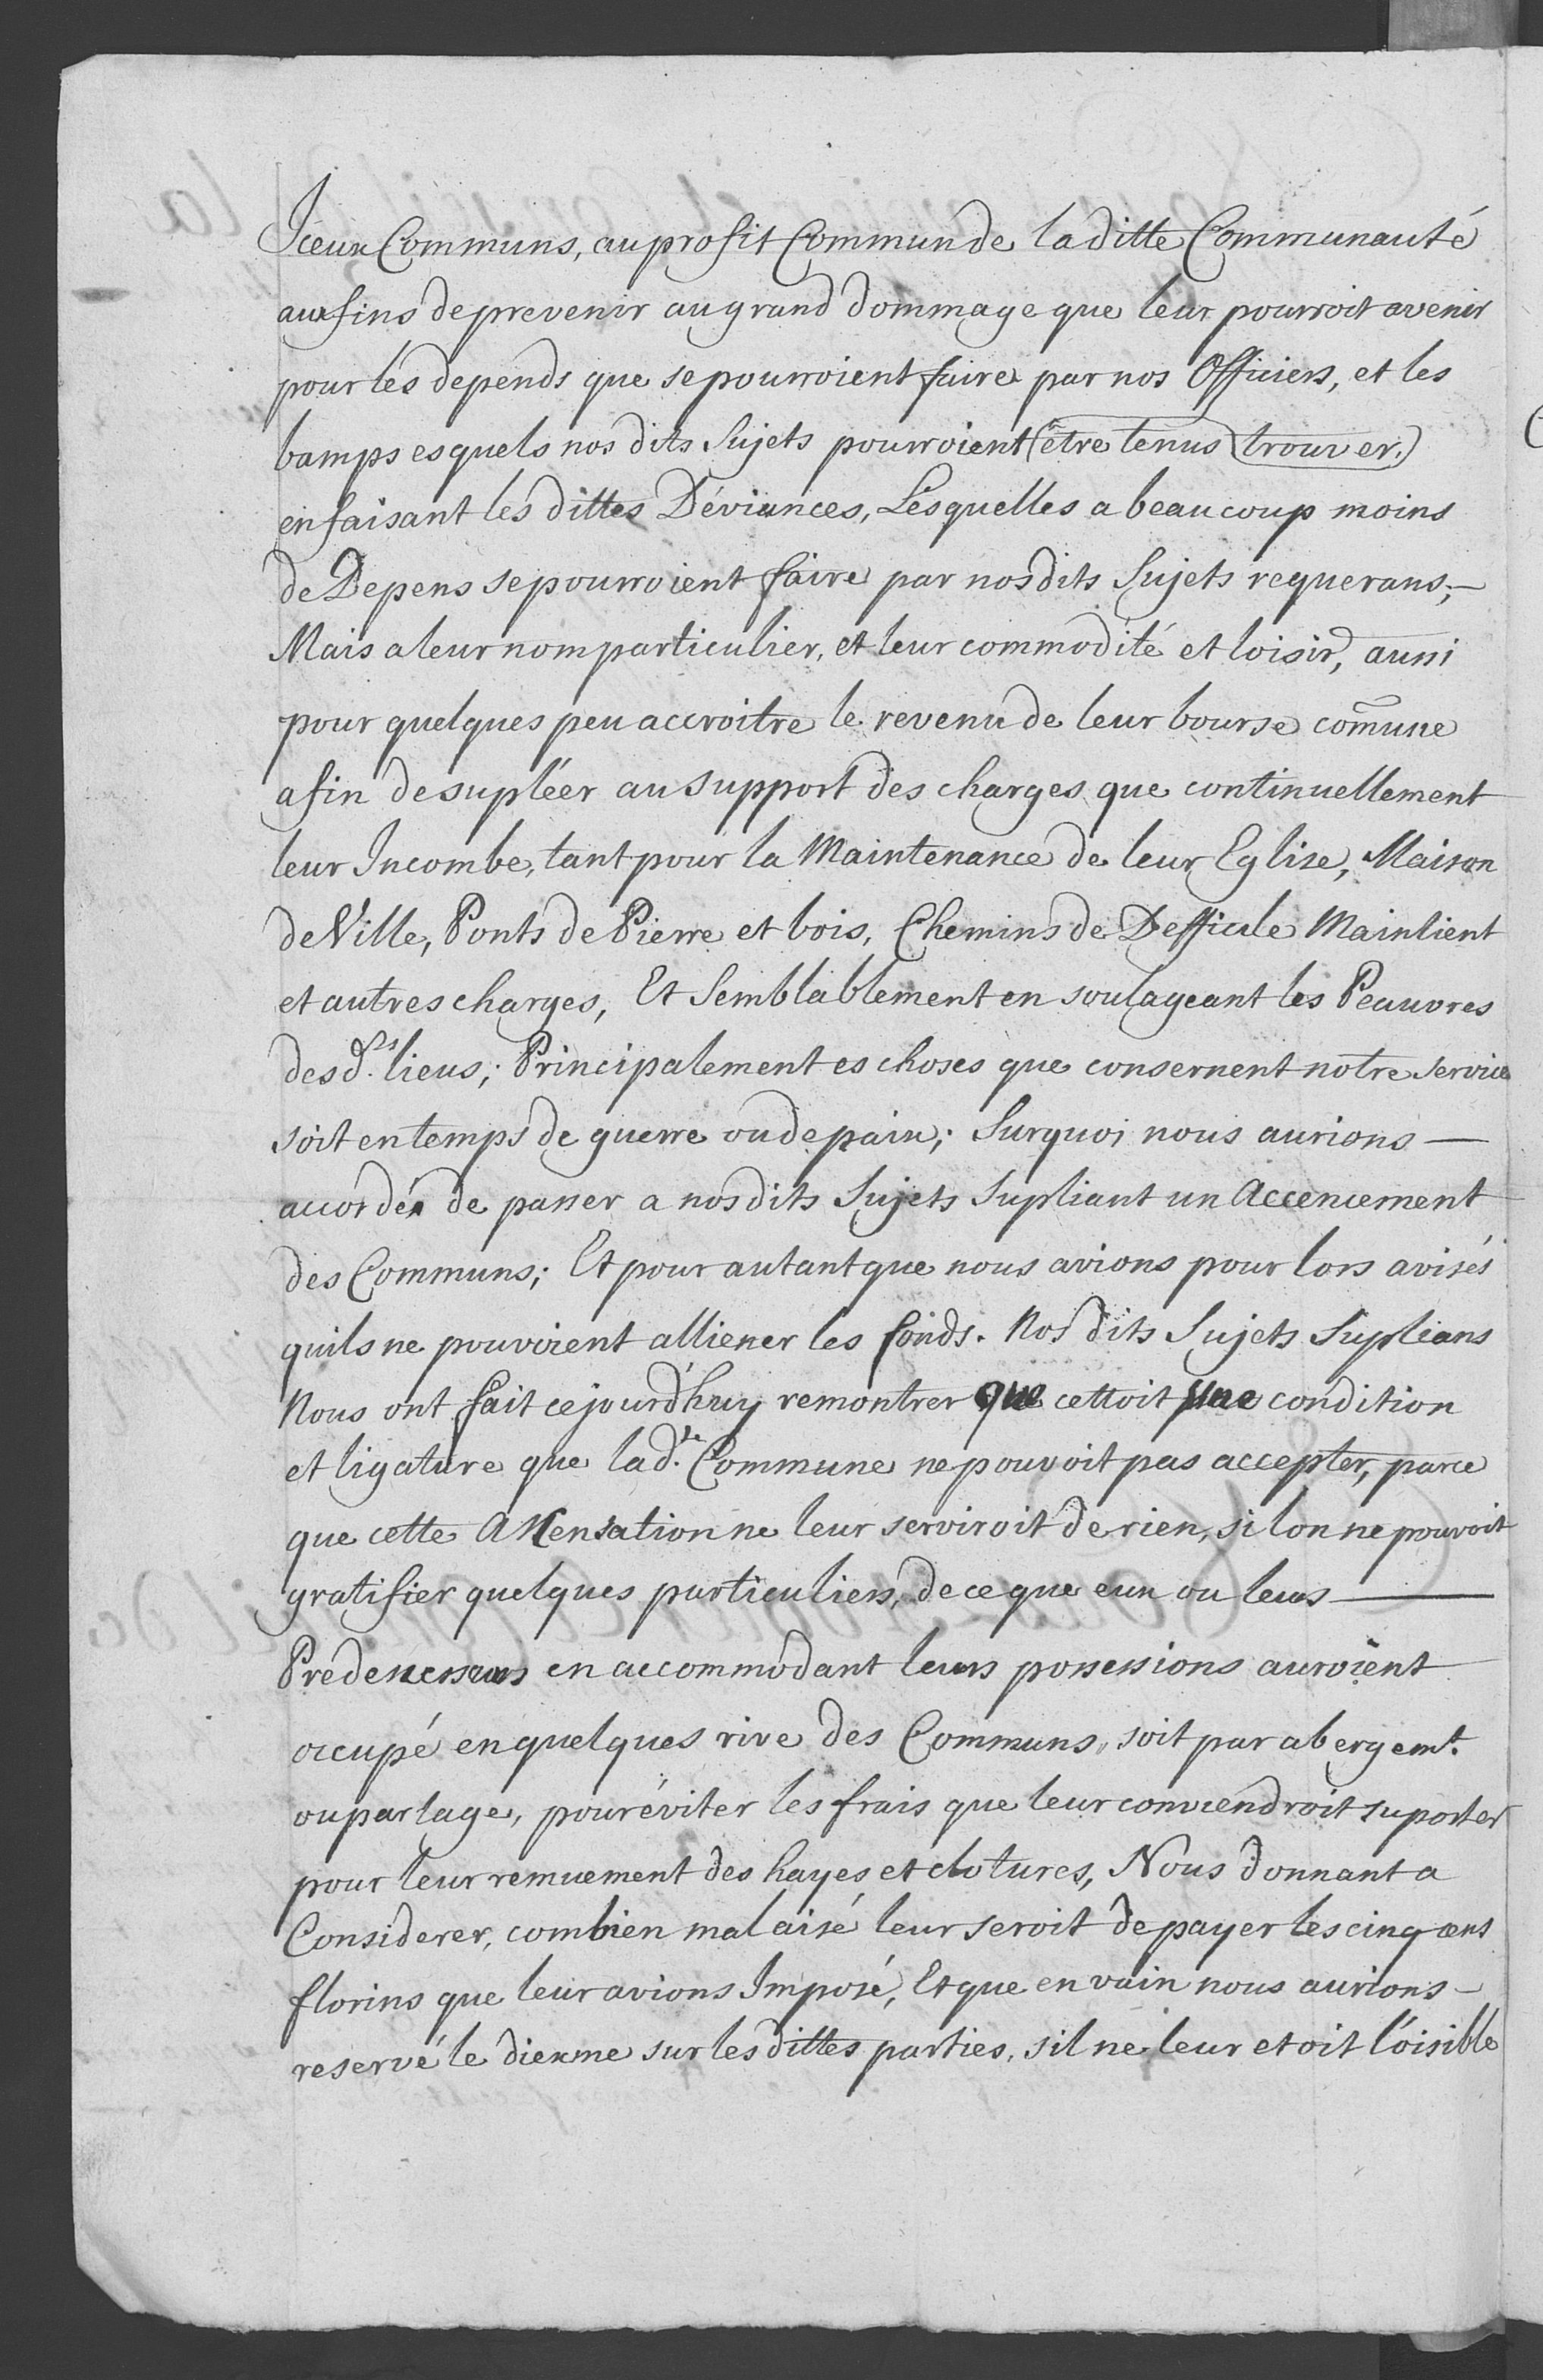 Iceux Communs, au profit Commun de la ditte Communauté
aux fins de prevenir au grand dommage que leur pourroit avenir
pour les depends que se pourroient faire par nos Officiers, et les
bamps esquels nos dits Sujets pourroient (etre tenus) (trouver.)
en faisant les dittes Déviances, Lesquelles a beaucoup moins
de Depens se pourroient faire par nosdits Sujets requerans;—
Mais a leur nom particulier, et leur commodité et loisir, aussi
pour quelques peu accroitre le revenu de leur bourse com̄une
afin de supléer au support des charges que continuellement
leur Incombe, tant pour la Maintenance de leur Eglise, Maison
de Ville, Ponts de Pierre et bois, Chemins de Defficile Maintient
et autres charges, Et Semblablement en soulageant les Peauvres
des d.ts lieus; Principalement es choses que consernent notre service
soit en temps de guerre ou de paix; Surquoi nous aurions —
accordés de passer a nosdits Sujets Supliant un Accencement
des Communs; Et pour autant que nous avions pour lors avisés
quils ne pouvoient alliener les fonds. Nos dits Sujets Suplians
Nous ont fait cejourd'huy remontrer que cettoit une condition
et ligature que lad.te Commune ne pouvoit pas accepter, parce
que cette Accensation ne leur serviroit de rien, si lon ne pouvoit
gratifier quelques particuliers, de ce que eux ou leurs —
Predecesseurs en accommodant leurs possessions auroient
occupé en quelques rive des Communs, soit par abergem.t
ou partage, pour éviter les frais que leur conviendroit suporter
pour leur remuement des hayes et clotures, Nous donnant a
Considerer, combien mal aisé leur seroit de payer les cinq cens
florins que leur avions Imposé, Et que en vain nous aurions —
reservé le diexme sur les dittes parties, sil ne leur etoit loisible